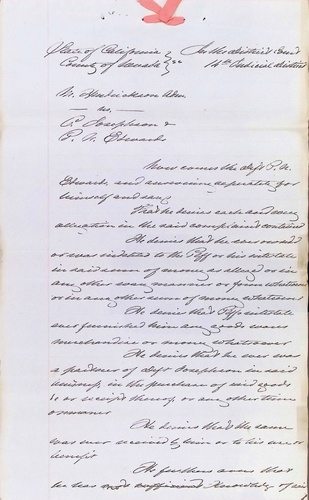 State of California } ss
County of Nevada }
In the District Court
14th Judicial District
W. Hendrickson Adm
vs.
Josephson &
P. N. Edwards
Now comes the deft P. N.
Edwards and answering separately for
himself and says
That he denies each and every
allegation in the said complaint contained
He denies that he ever owed
or was indebted to the Plff or his intestate
in said sum of money as alleged or in
any other way manner or form whatever
or in any other sum of money whatever
He denies that Plffs intestate
ever furnished him any goods wares
merchandise or money whatever
He denies that he ever was
a partner of deft Josephson in said
in the purchase of said goods
&c or receipt thereof or any other time
or manner
He denies that the same
was ever received by him or to his use or
benefit
He further avers that
he has not sufficient knowledge of